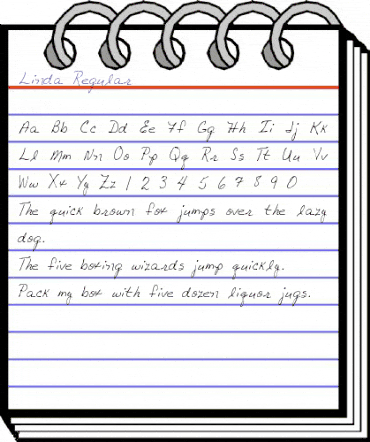 Linda Regular
Aa Bb Cc Dd Ee Ff Gg Hh Ii Jj Kk
Ll Mm Nn Oo Pp Qq Rr Ss Tt Uu Vv
Ww Xx Yy Zz 1 2 3 4 5 6 7 8 9 0
The quick brown fox jumps over the lazy
dog.
The five boxing wizards jump quickly.
Pack my box with five dozen liquor jugs.